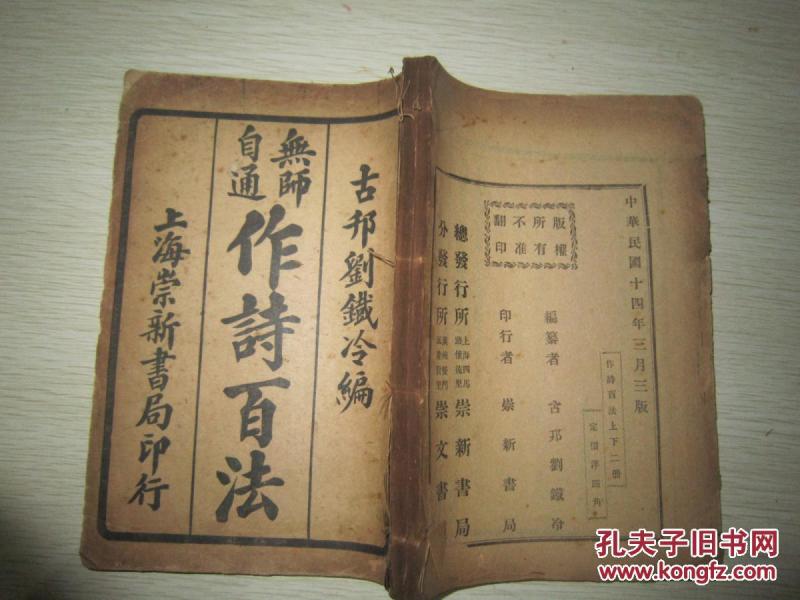 古邗劉鐵冷編
無師
自通
作詩百法
上海崇新書局印行
中華民國十四年三月三版
作詩百法上下二冊
定價洋四角
版權
所有
不准
翻印
編纂者 古邗劉鐵冷
印行者 崇新書局
總發行所 上海四馬 崇新書局
分發行所 崇文書
孔夫子旧书网
www.kongfz.com